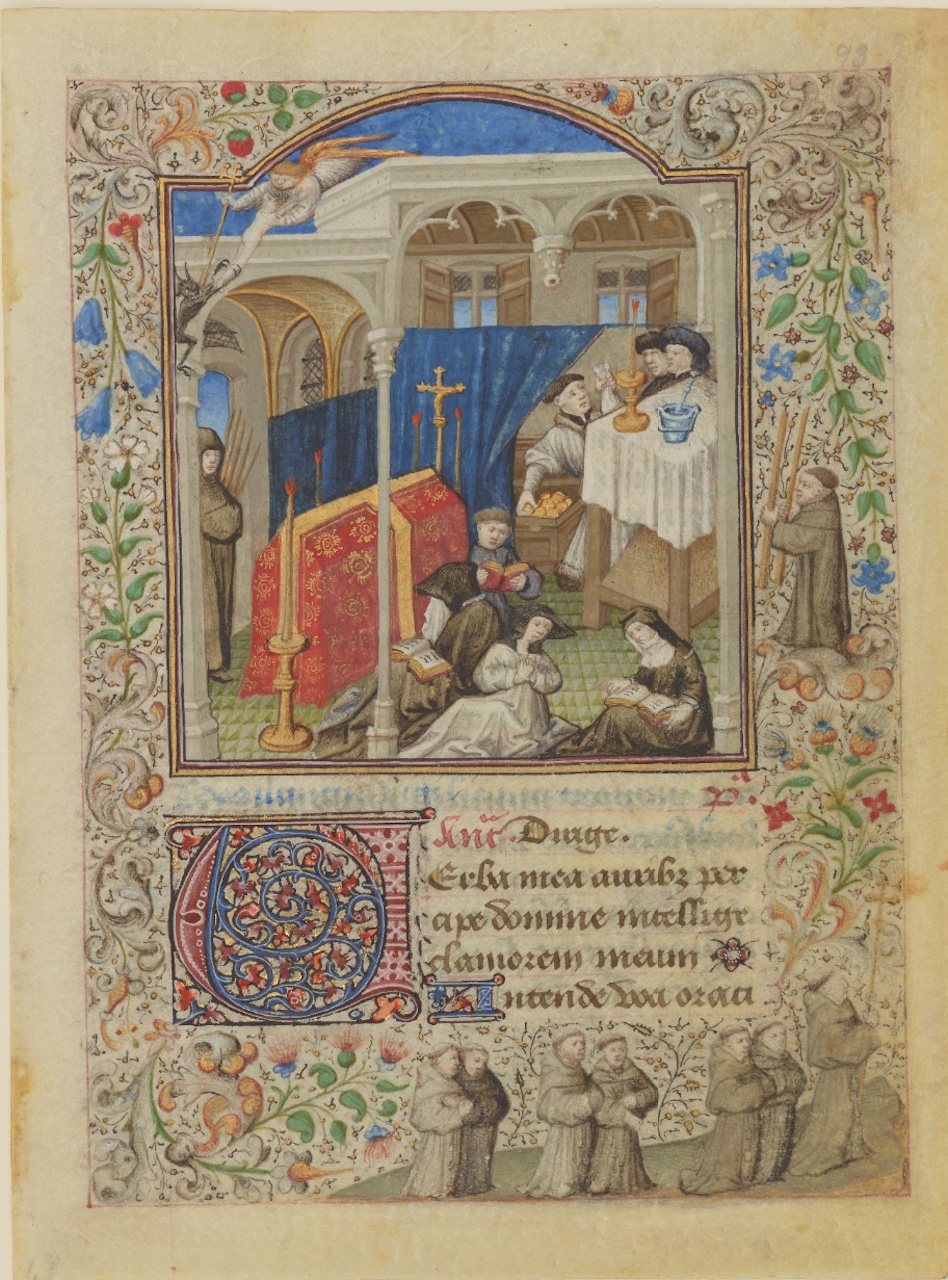 93
p̄.
Ant̄. Dirige.
Verba mea auribꝫ per
cipe domine intellige
clamorem meum
Intende voci oraci